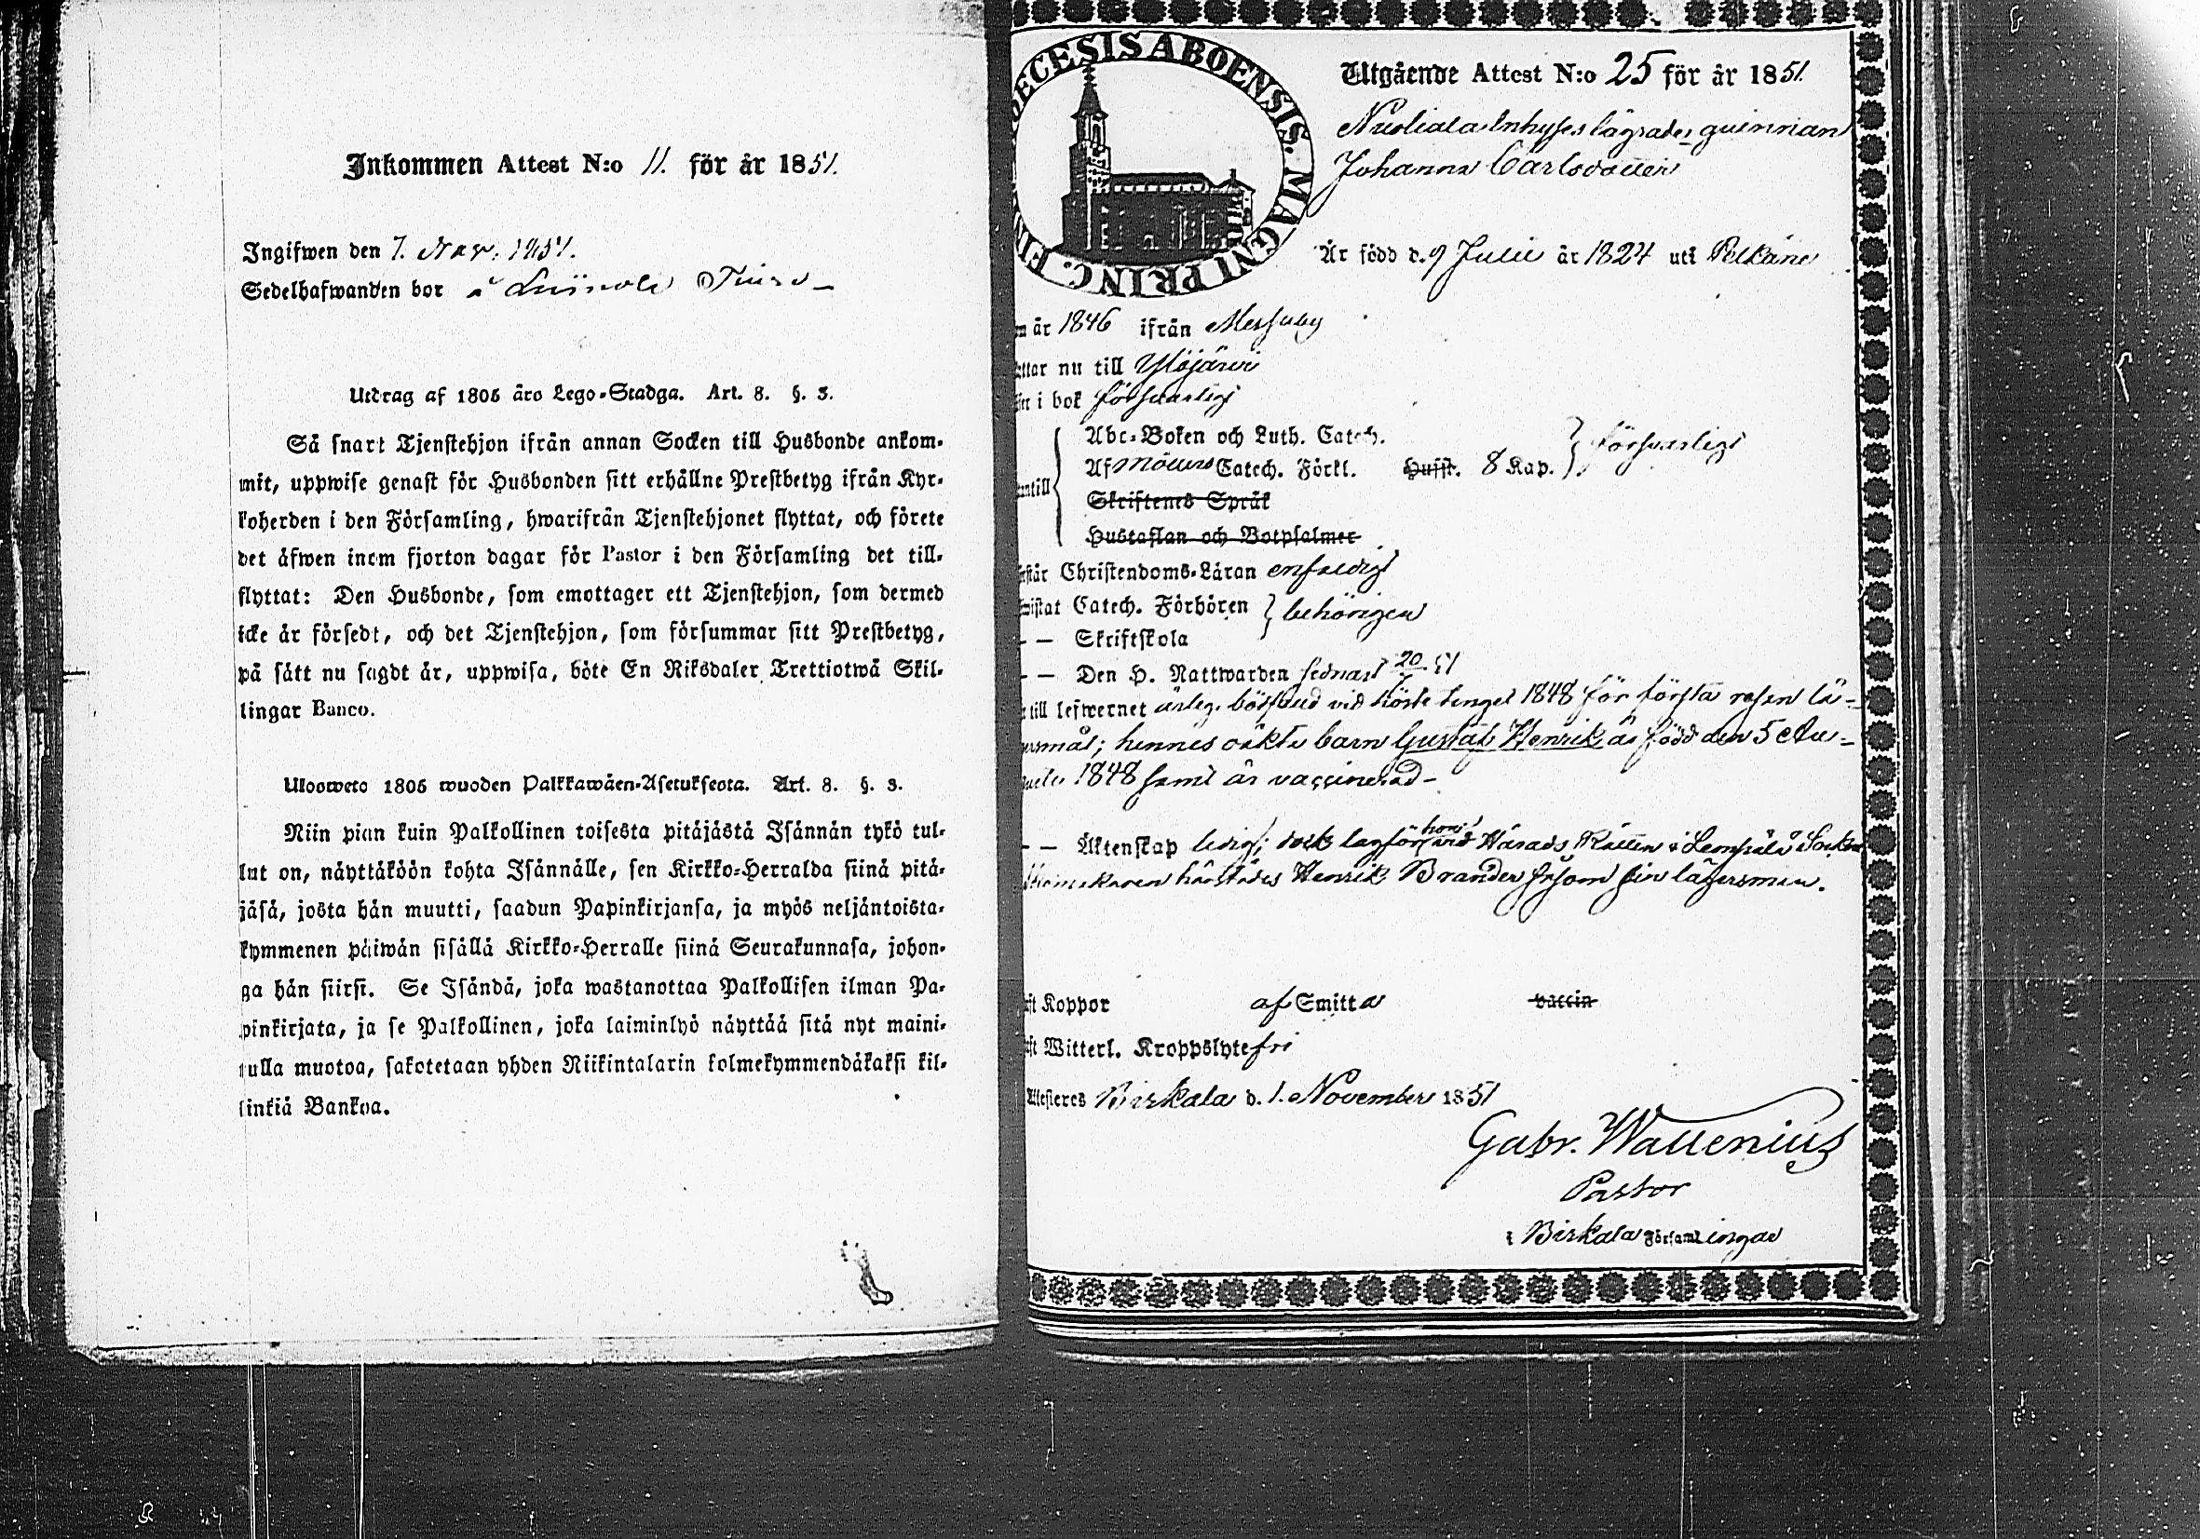 Inkommen Attest N:o 11. för år 1851.
Ingifwen den 7. Nov. 1851.
Sedelhafwanden bor å
Utdrag af 1805 års Lego-Stadga. Art. 8. §. 3.
Så snart Tjenstehjon ifrån annan Socken till Husbonde ankom-
mit, uppwise genast för Husbonden sitt erhållne Prestbetyg ifrån Kyr-
koherden i den Församling, hwarifrån Tjenstehjonet flyttat, och förete
det äfwen inom fjorton dagar för Pastor i den Församling det till-
flyttat: Den Husbonde, som emottager ett Tjenstehjon, som dermed
icke är försedt, och det Tjenstehjon, som försummar sitt Prestbetyg,
på sätt nu sagdt är, uppwisa, böte En Riksdaler Trettiotwå Skil-
lingar Banco.
Ulosweto 1805 wuoden Palkkawäen-Asetuksesta. Art. 8. §. 3.
Niin pian kuin Palkollinen toisesta pitäjästä Isännän tykö tul-
lut on, näyttäköön kohta Isännälle, sen Kirkko-Herralda siinä pitä-
jäsä, josta hän muutti, saadun Papinkirjansa, ja myös neljäntoista-
kymmenen päiwän sisällä Kirkko-Herralle siinä Seurakunnasa, johon-
ga hän siirsi. Se Isändä, joka wastanottaa Palkollisen ilman Pa-
pinkirjata, ja se Palkollinen, joka laiminlyö näyttää sitä nyt maini-
tulla muotoa, sakotetaan yhden Riikintalarin kolmekymmendäkaksi kil-
linkiä Bankoa.
ECESIS ABOENSIS. MAGNI PRINC. FIN
Utgående Attest N:o 25 för år 1851.
Inhyses lägrade qvinnan
Johanna Carlsdotter
Är född d. 9 Julii år 1824 uti Pelkäne
år 1846 ifrån Messuby
ttar nu till Ylöjärvi
i bok försvarligt
Abc-Boken och Luth. Catech.
Af Möllers Catech. Förkl. Hufst. 8 Kap. försvarligt
antill
Skriftenes Språk
Hustaflan och Botpsalmer
står Christendoms-Läran enfaldigt
wistat Catech. Förhören behörigen
— — Skriftskola
— — Den H. Nattwarden sednast 20 51
till lefwernet ärlig. bötfäld vid höste tinget 1848 för första resan lä-
ersmål; hennes oäkta barn Gustaf Henrik är född den 5 Au-
1848 samt är vaccinerad —
— — Äktenskap ledig; dock lagförd hon vid Härads Rätten i Lempälä Socken
härstädes Henrik Brander såsom sin lägersman.
ft Koppor af Smitta vaccin
ft Witterl. Kroppslyte fri
Attesteres Birkala d. 1. November 1851
Gabr. Wallenius
Pastor
i Birkala Församlingar